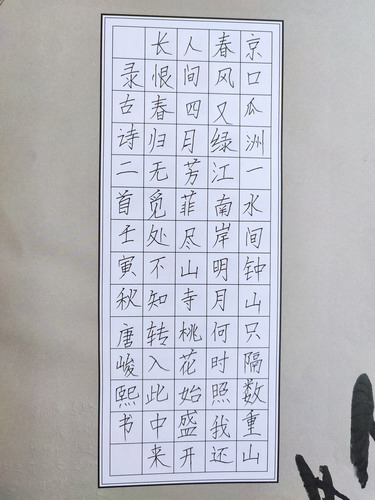 京口瓜洲一水间钟山只隔数重山
春风又绿江南岸明月何时照我还
人间四月芳菲尽山寺桃花始盛开
长恨春归无觅处不知转入此中来
录古诗二首壬寅秋唐峻熙书